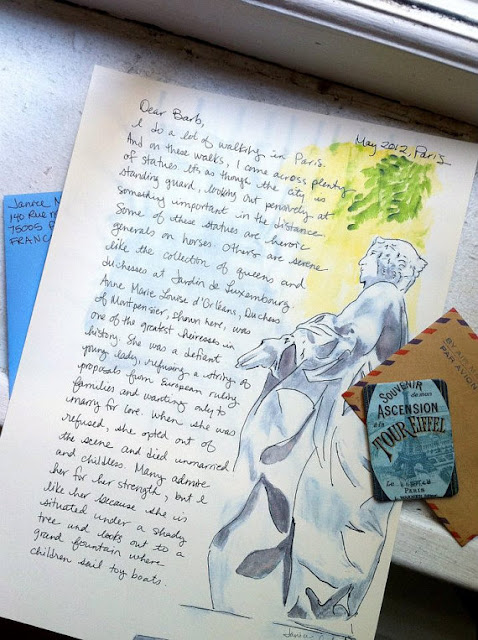 May 2012, Paris
Dear Barb,
I do a lot of walking in Paris.
And on these walks, I come across plenty
of statues. It's as though the city is
standing guard, looking out pensively at
something important in the distance.
Some of these statues are heroic
generals on horses. Others are serene
like the collection of queens and
duchesses at Jardin de Luxembourg.
Anne Marie Louise d'Orleans, Duchess
of Montpensier, shown here, was
one of the greatest heiresses in
history. She was a defiant
young lady, refusing a string of
proposals from European ruling
families and wanting only to
marry for love. When she was
refused, she opted out of
the scene and died unmarried
and childless. Many admire
her for her strength, but I
like her because she is
situated under a shady
tree and looks out to a
grand fountain where
children sail toy boats.
Janice M
190 Rue
75005 P
FRANC
BY AIR M
PAR AVION
SOUVENIR de mon
ASCENSION
à la
TOUR EIFFEL
PARIS